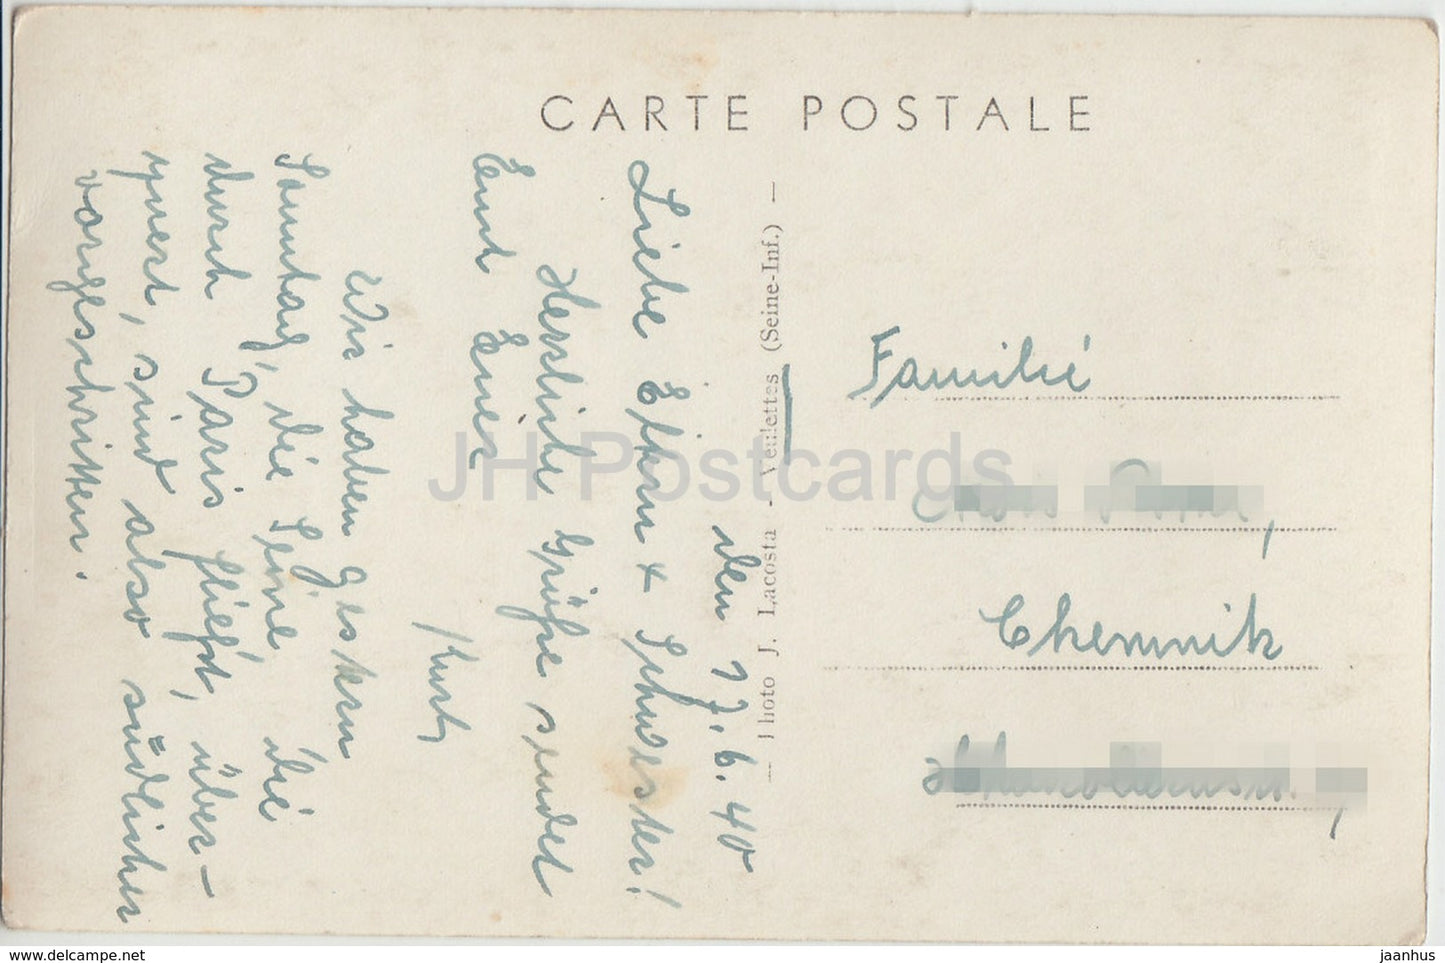 CARTE POSTALE
den 17.6.40
Liebe Eltern + Schwester!
Herzliche Grüße sendet
Euch Euer
Kurt
Wir haben gestern
Sonntag, die Seine die
durch Paris fließt, über-
quert, sind also südlicher
vorgeschritten.
Photo J. Lacosta - Veulettes (Seine-Inf.)
Familie
Chemnitz
JH Postcards
www.hippostcard.com
jaanhus